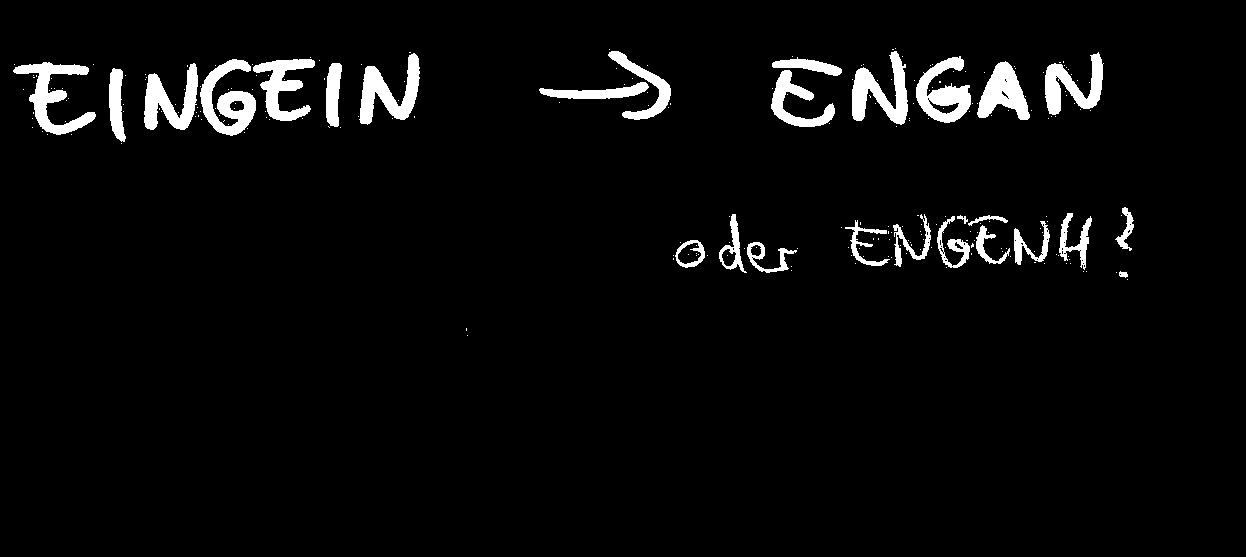 EINGEIN → ENGAN
oder ENGENH?